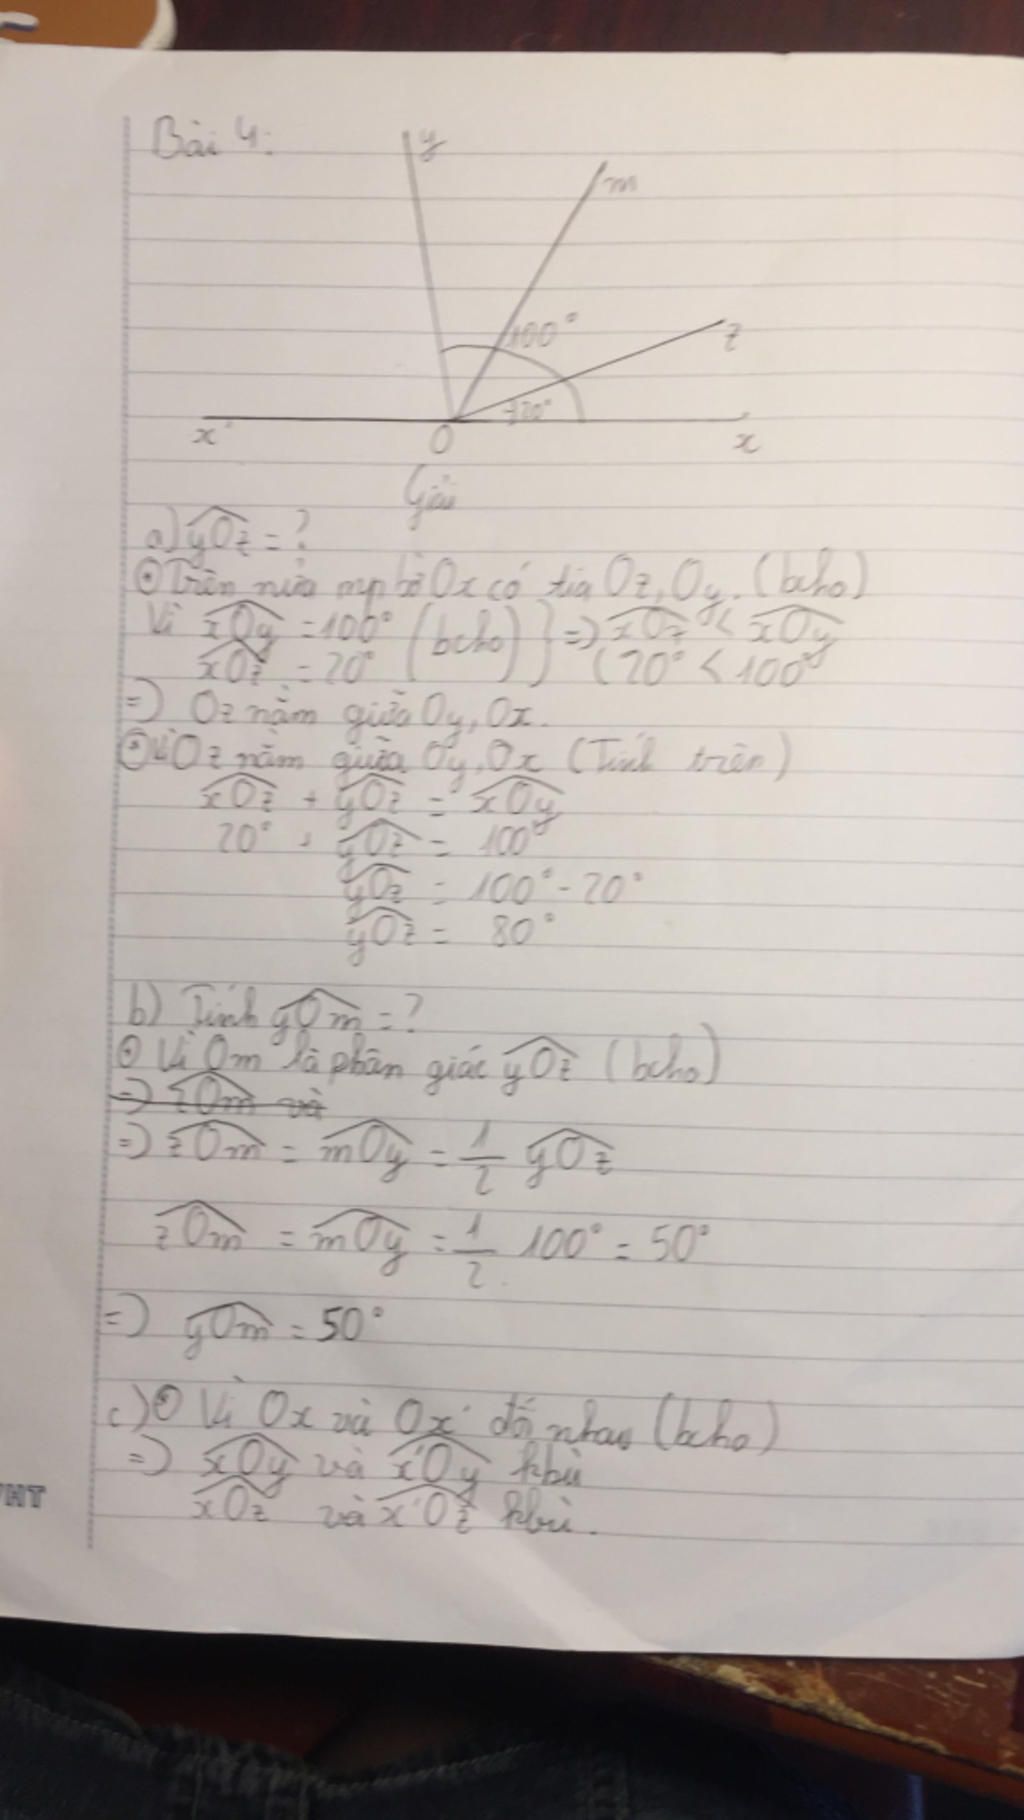 Bài 4:
y
m
100°
z
20°
x'
O
x
Giải
a) yOz = ?
Trên nửa mp bờ Ox có tia Oz, Oy. (bcho)
Vì xOy = 100° (bcho) } => xOz < xOy
xOz = 20° (20° < 100°
=> Oz nằm giữa Oy, Ox.
Vì Oz nằm giữa Oy, Ox (Tính trên)
xOz + yOz = xOy
20° + yOz = 100°
yOz = 100° - 20°
yOz = 80°
b) Tính yOm = ?
Vì Om là phân giác yOz (bcho)
=> zOm và
=> zOm = mOy = 1/2 yOz
zOm = mOy = 1/2 . 100° = 50°
=> yOm = 50°
c) Vì Ox và Ox' đối nhau (bcho)
=> xOy và x'Oy kbù
xOz và x'Oz kbù.
HT